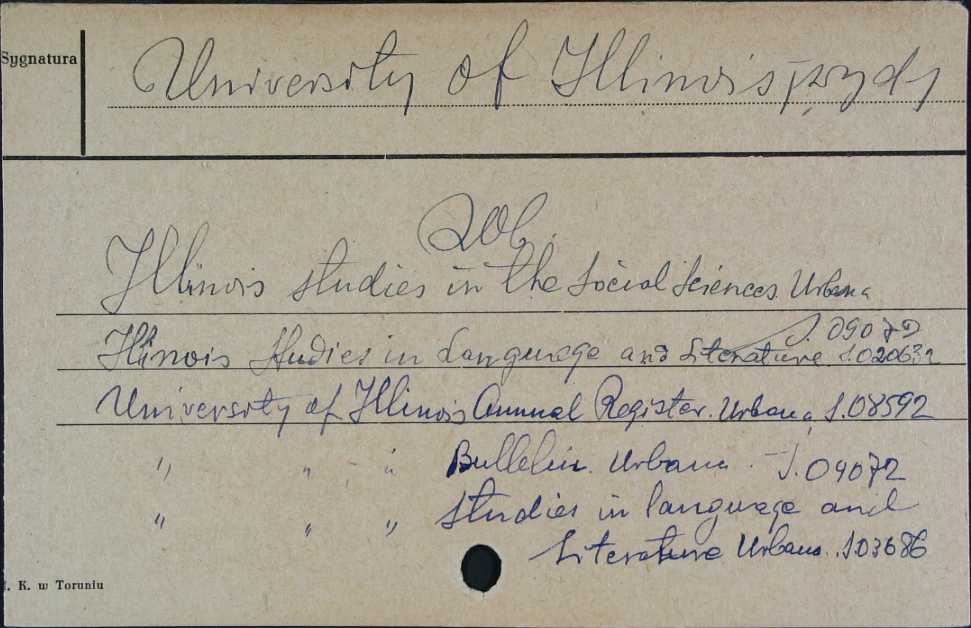 Sygnatura
University of Illinois, wyd.
Zob.
Illinois studies in the Social Sciences. Urbana
S. 09072
Illinois Studies in Language and Literature S.020632
University of Illinois Annual Register. Urbana, S.08592
" " " Bulletin. Urbana. - S.04072
" " " Studies in language and
Literature Urbana. S03686
I. K. w Toruniu